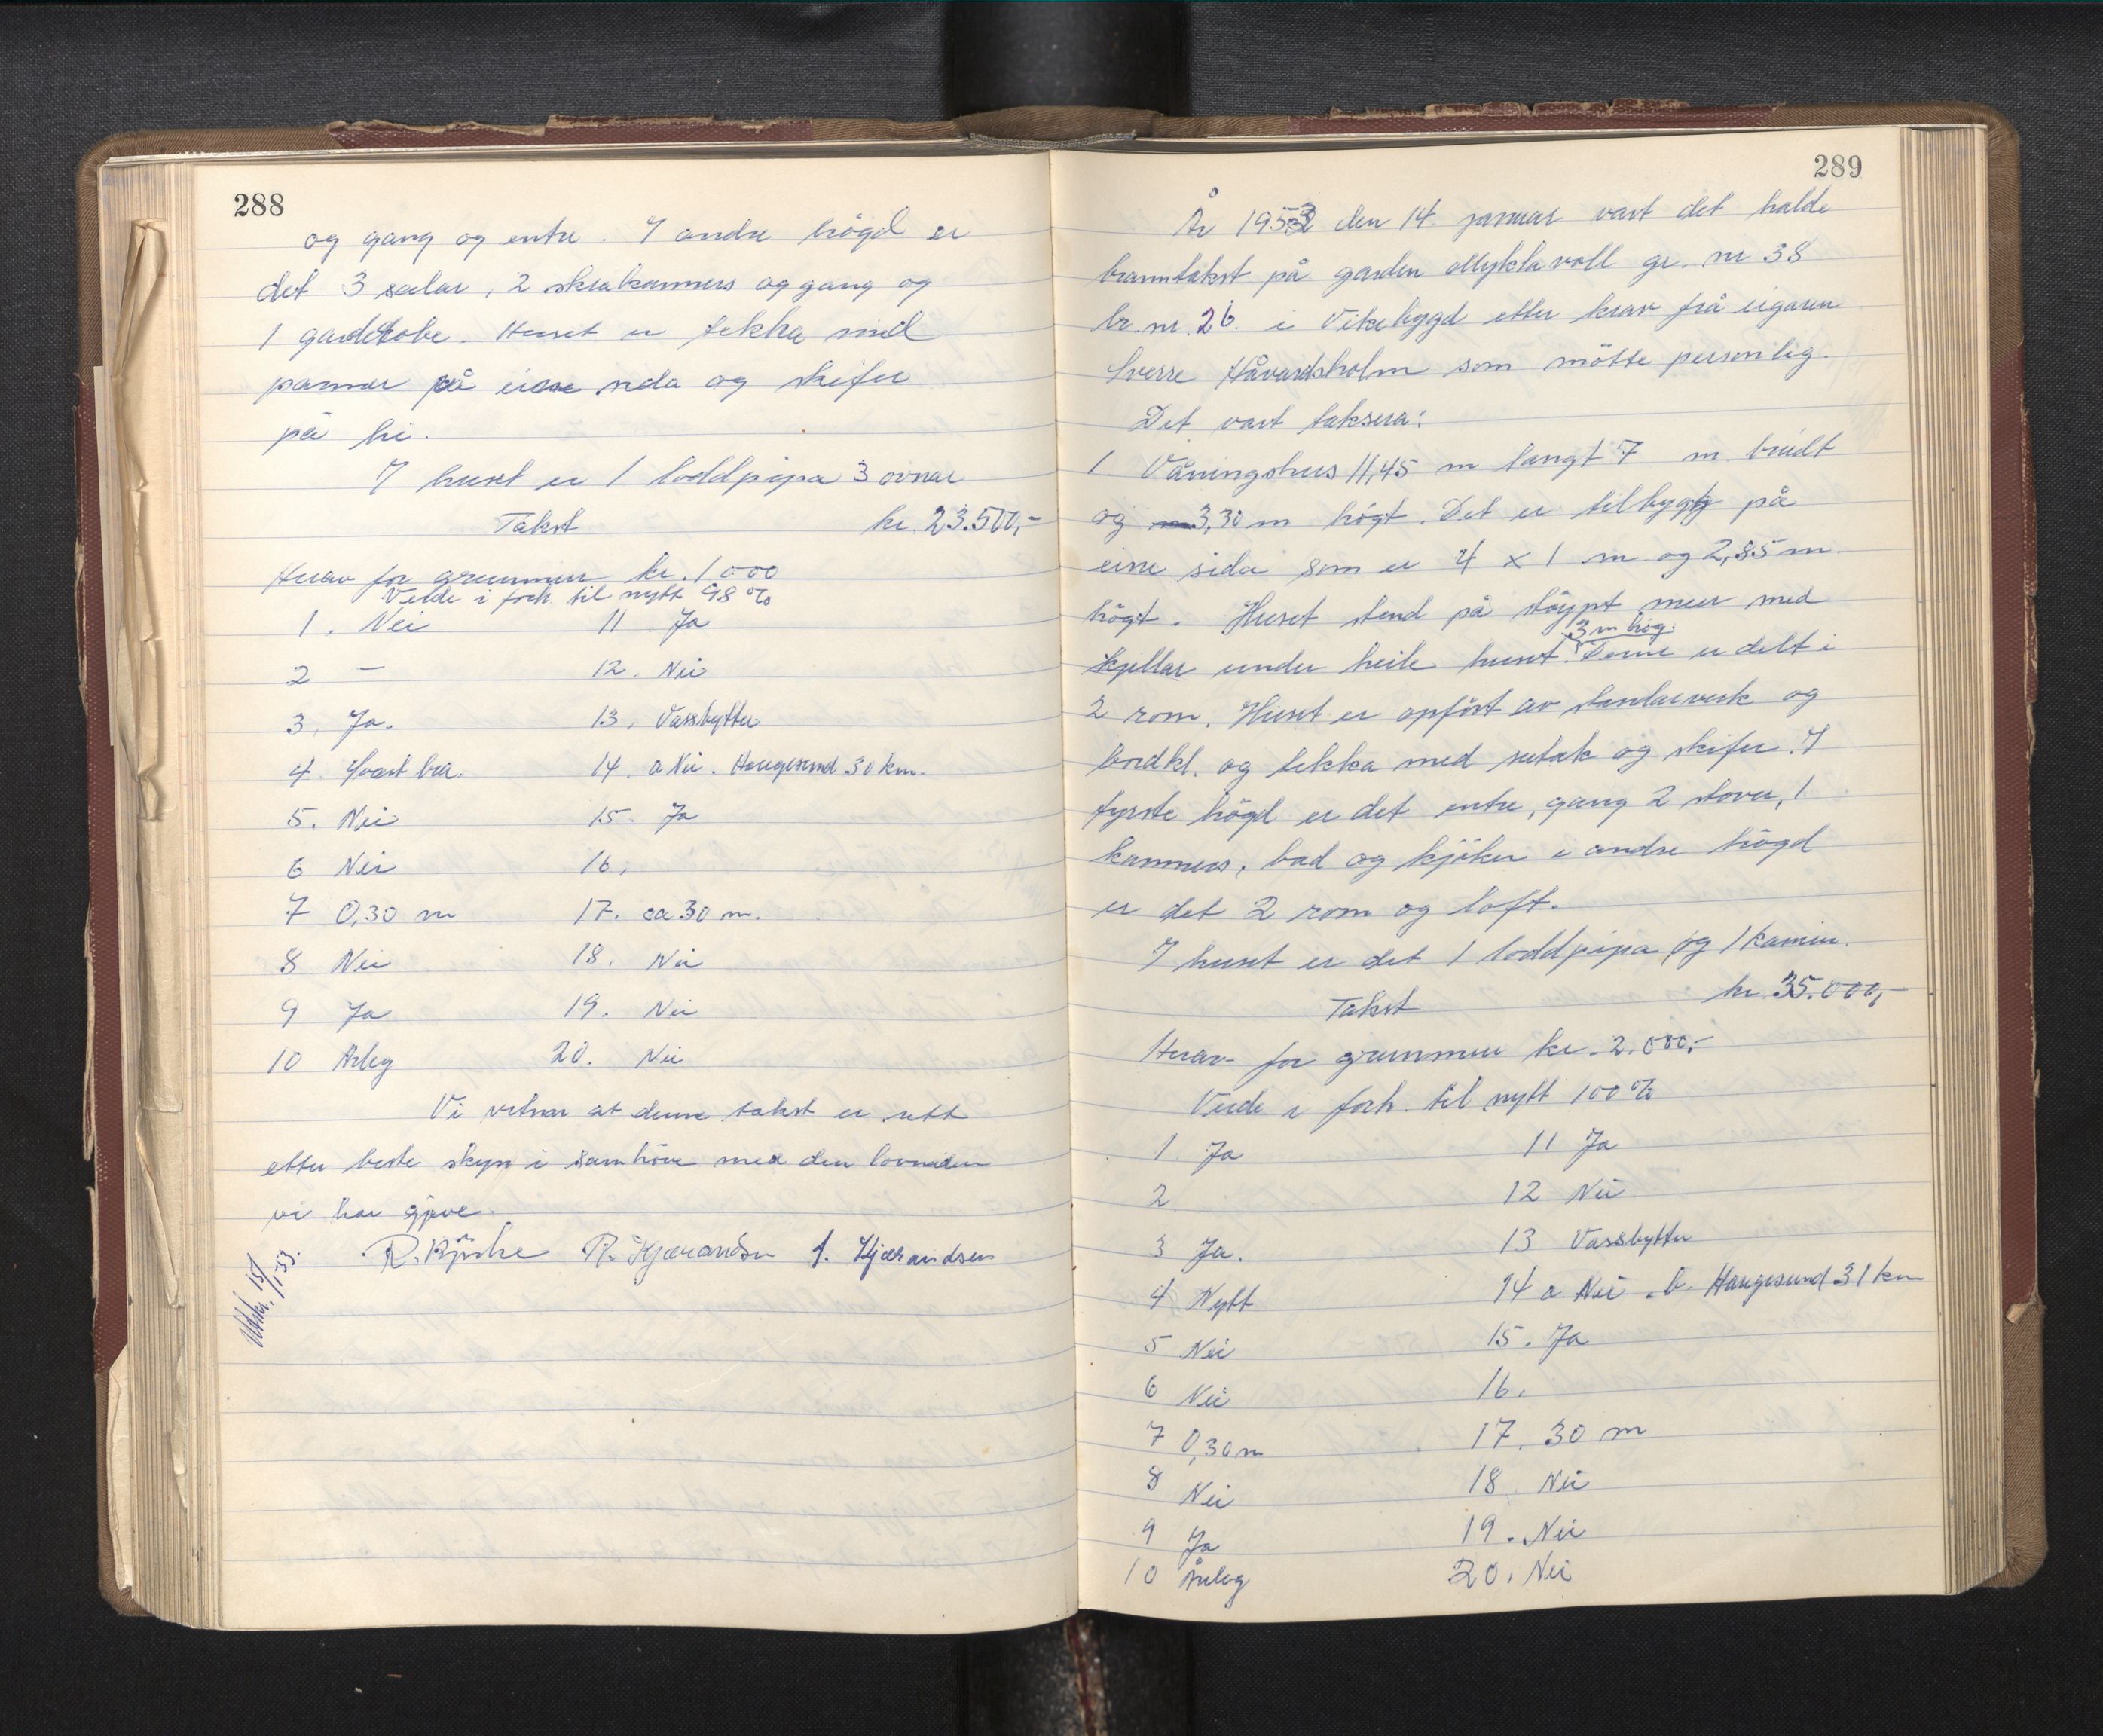 288
og gang og entre. I andre högd er
det 3 salar, 2 skrakammers og gang og
1 garderobe. Huset er tekka med
pannor på eine sida og skifer
på hi.
I huset er 1 loddpipa 3 ovnar
Takst kr. 23.500,-
Herav for grunnmur kr. 1000
Verde i forh. til nytt 98 %
1. Nei 11 Ja
2 – 12. Nei
3. Ja. 13. Vassbytter
4. Svært bra. 14. a Nei. Haugesund 30 km.
5. Nei 15. Ja
6 Nei 16.
7 0,30 m 17. ca 30 m.
8 Nei 18. Nei
9 Ja 19. Nei
10 Årleg 20. Nei
Vi vitnar at denne takst er sett
etter beste skyn i samhöve med den lovnaden
vi har gjeve.
R. Kjærandsen S. Kjærandsen
Utskr. 15/1-53.
289
År 1953 den 14. januar vart det halde
branntakst på garden Myklavoll gr. nr 38
br. nr. 26. i Vikebygd etter krav frå eigaren
Sverre Håvardsholm som mötte personlig.
Det vart taksera:
1 Våningshus 11,45 m langt 7 m breidt
og 3,30 m högt. Det er tilbygg på
eine sida som er 4 x 1 m og 2,85 m
högt. Huset stend på stöypt mur med
3 m hög.
kjellar under heile huset. Denne er delt i
2 rom. Huset er opfört av stendarverk og
bordkl. og tekka med sutak og skifer. I
fyrste högd er det entre, gang 2 stover, 1
kammers, bad og kjöken i andre högd
er det 2 rom og loft.
I huset er det 1 loddpipa og 1 kamin.
Takst kr. 35.000,-
Herav for grunnmur kr. 2.000,-
Verde i forh. til nytt 100 %
1 Ja 11 Ja
2 12 Nei
3 Ja. 13 Vassbytter
4 Nytt 14 a Nei. b. Haugesund 31 km
5 Nei 15. Ja
6 Nei 16.
7 0,30 m 17. 30 m
8 Nei 18. Nei
9 Ja 19. Nei
10 Årleg 20. Nei